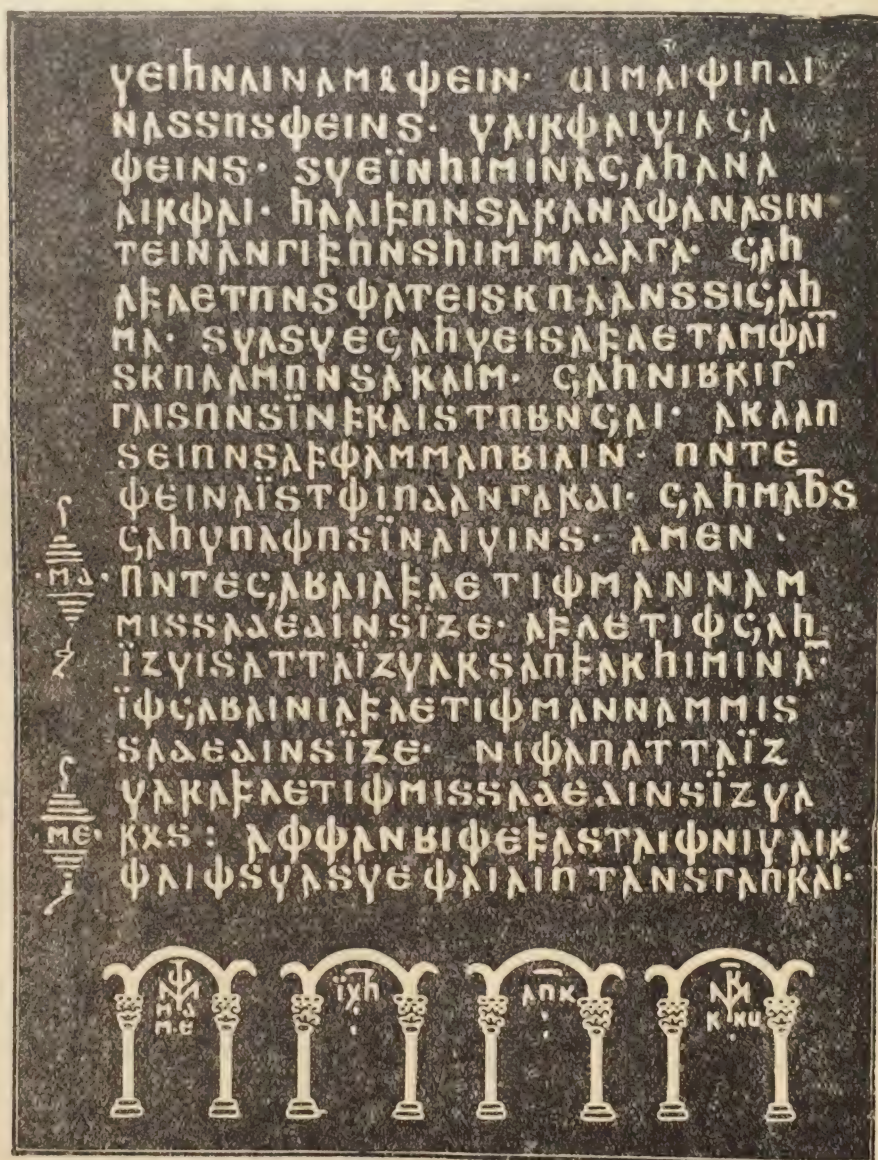 𐍅𐌴𐌹𐌷𐌽𐌰𐌹𐌽𐌰𐌼𐍉𐌸𐌴𐌹𐌽· 𐌵𐌹𐌼𐌰𐌹𐌸𐌹𐌿𐌳𐌹
𐌽𐌰𐍃𐍃𐌿𐍃𐌸𐌴𐌹𐌽𐍃· 𐍅𐌰𐌹𐍂𐌸𐌰𐌹𐍅𐌹𐌻𐌾𐌰
𐌸𐌴𐌹𐌽𐍃· 𐍃𐍅𐌴𐌹̈𐌽𐌷𐌹𐌼𐌹𐌽𐌰𐌾𐌰𐌷𐌰𐌽𐌰
𐌰𐌹𐍂𐌸𐌰𐌹· 𐌷𐌻𐌰𐌹𐍆𐌿𐌽𐍃𐌰𐍂𐌰𐌽𐌰𐌸𐌰𐌽𐌰𐍃𐌹𐌽
𐍄𐌴𐌹𐌽𐌰𐌽𐌲𐌹𐍆𐌿𐌽𐍃𐌷𐌹𐌼𐌼𐌰𐌳𐌰𐌲𐌰· 𐌾𐌰𐌷
𐌰𐍆𐌻𐌴𐍄𐌿𐌽𐍃𐌸𐌰𐍄𐌴𐌹𐍃𐌺𐌿𐌻𐌰𐌽𐍃𐍃𐌹𐌾𐌰𐌹
𐌼𐌰· 𐍃𐍅𐌰𐍃𐍅𐌴𐌾𐌰𐌷𐍅𐌴𐌹𐍃𐌰𐍆𐌻𐌴𐍄𐌰𐌼𐌸𐌰𐌹̅
𐍃𐌺𐌿𐌻𐌰𐌼𐌿𐌽𐍃𐌰𐍂𐌰𐌹𐌼· 𐌾𐌰𐌷𐌽𐌹𐌱𐍂𐌹𐌲
𐌲𐌰𐌹𐍃𐌿𐌽𐍃𐌹̈𐌽𐍆𐍂𐌰𐌹𐍃𐍄𐌿𐌱𐌽𐌾𐌰𐌹· 𐌰𐌺𐌻𐌰𐌿
𐍃𐌴𐌹𐌿𐌽𐍃𐌰𐍆𐌸𐌰𐌼𐌼𐌰𐌿𐌱𐌹𐌻𐌹𐌽· 𐌿𐌽𐍄𐌴
𐌸𐌴𐌹𐌽𐌰𐌹̈𐍃𐍄𐌸𐌹𐌿𐌳𐌰𐌽𐌲𐌰𐍂𐌳𐌹· 𐌾𐌰𐌷𐌼𐌰𐌷𐍄𐍃
𐌾𐌰𐌷𐍅𐌿𐌻𐌸𐌿𐍃𐌹̈𐌽𐌰𐌹𐍅𐌹𐌽𐍃· 𐌰𐌼𐌴𐌽·
·𐌼𐌳· 𐌿𐌽𐍄𐌴𐌾𐌰𐌱𐌰𐌹𐌰𐍆𐌻𐌴𐍄𐌹𐌸𐌼𐌰𐌽𐌽𐌰𐌼
𐌼𐌹𐍃𐍃𐌰𐌳𐌴𐌳𐌹𐌽𐍃𐌹̈𐌶𐌴· 𐌰𐍆𐌻𐌴𐍄𐌹𐌸𐌾𐌰𐌷
𐌶 𐌹̈𐌶𐍅𐌹𐍃𐌰𐍄𐍄𐌰𐌹̈𐌶𐍅𐌰𐍂𐍃𐌰𐌿𐍆𐌰𐍂𐌷𐌹𐌼𐌹𐌽𐌰̅·
𐌹̈𐌸𐌾𐌰𐌱𐌰𐌹𐌽𐌹𐌰𐍆𐌻𐌴𐍄𐌹𐌸𐌼𐌰𐌽𐌽𐌰𐌼𐌼𐌹𐍃
𐍃𐌰𐌳𐌴𐌳𐌹𐌽𐍃𐌹̈𐌶𐌴· 𐌽𐌹𐌸𐌰𐌿𐌰𐍄𐍄𐌰𐌹̈𐌶
𐍅𐌰𐍂𐌰𐍆𐌻𐌴𐍄𐌹𐌸𐌼𐌹𐍃𐍃𐌰𐌳𐌴𐌳𐌹𐌽𐍃𐌹̈𐌶𐍅𐌰
·𐌼𐌴· 𐍂𐍉𐍃: 𐌰𐌸𐌸𐌰𐌽𐌱𐌹𐌸𐌴𐍆𐌰𐍃𐍄𐌰𐌹𐌸𐌽𐌹𐍅𐌰𐌹𐍂
𐌸𐌰𐌹𐌸𐍃𐍅𐌰𐍃𐍅𐌴𐌸𐌰𐌹𐌻𐌹𐌿𐍄𐌰𐌽𐍃𐌲𐌰𐌿𐍂𐌰𐌹·
𐌼𐌳
𐌼𐌴